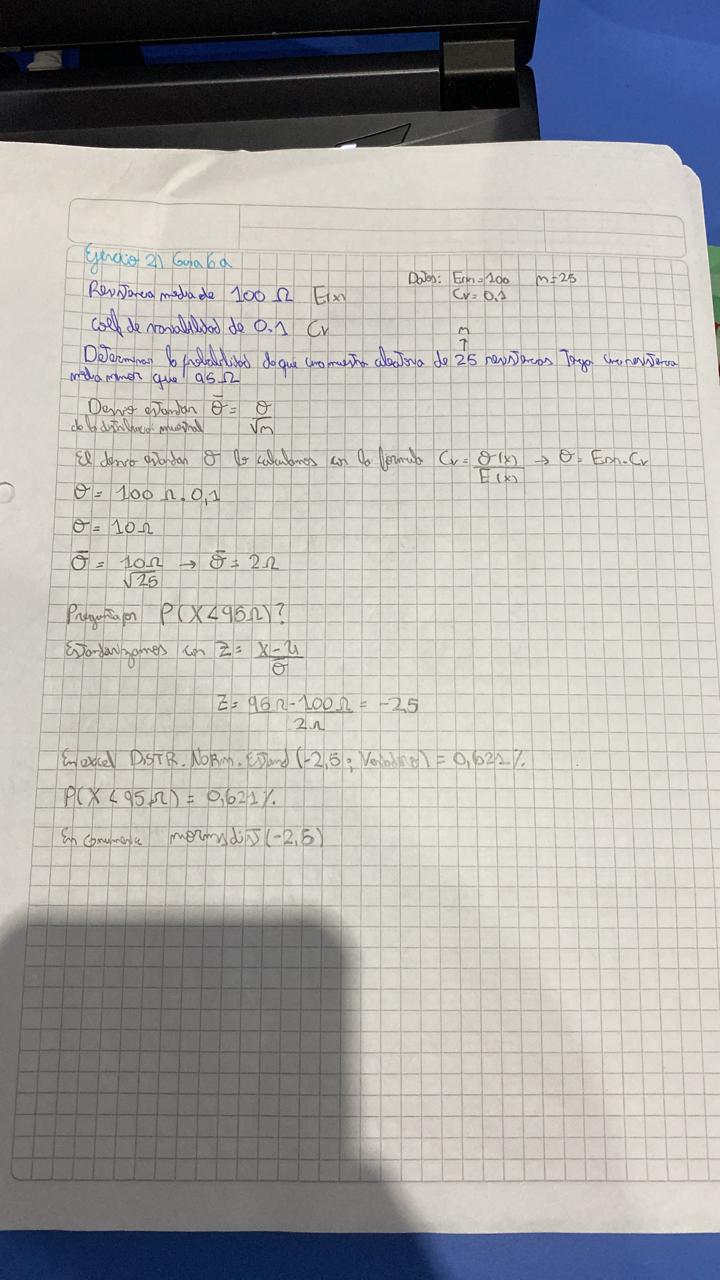 Ejercicio 2) Guia 6a
Datos: E(x)=100 n=25
Cv=0,1
Resistencia media de 100 Ω E(x)
Coef de variabilidad de 0.1 Cv
n
↑
Determinar la probabilidad de que una muestra aleatoria de 25 resistencias tenga una resistencia
media menor que 95Ω
Desvio estandar σ̄ = σ/√n
de la distribucion muestral
El desvio estandar σ lo calculamos con la formula Cv = σ(x)/E(x) → σ = E(x).Cv
σ = 100 Ω . 0,1
σ = 10Ω
σ̄ = 10Ω/√25 → σ̄ = 2Ω
Pregunta por P(X<95Ω)?
Estandarizamos con Z = X-μ/σ̄
Z = 95Ω-100Ω/2Ω = -2.5
En excel DISTR.NORM.ESTAND(-2,5; Verdadero) = 0,621%
P(X<95Ω) = 0,621%
normsdist(-2,5)